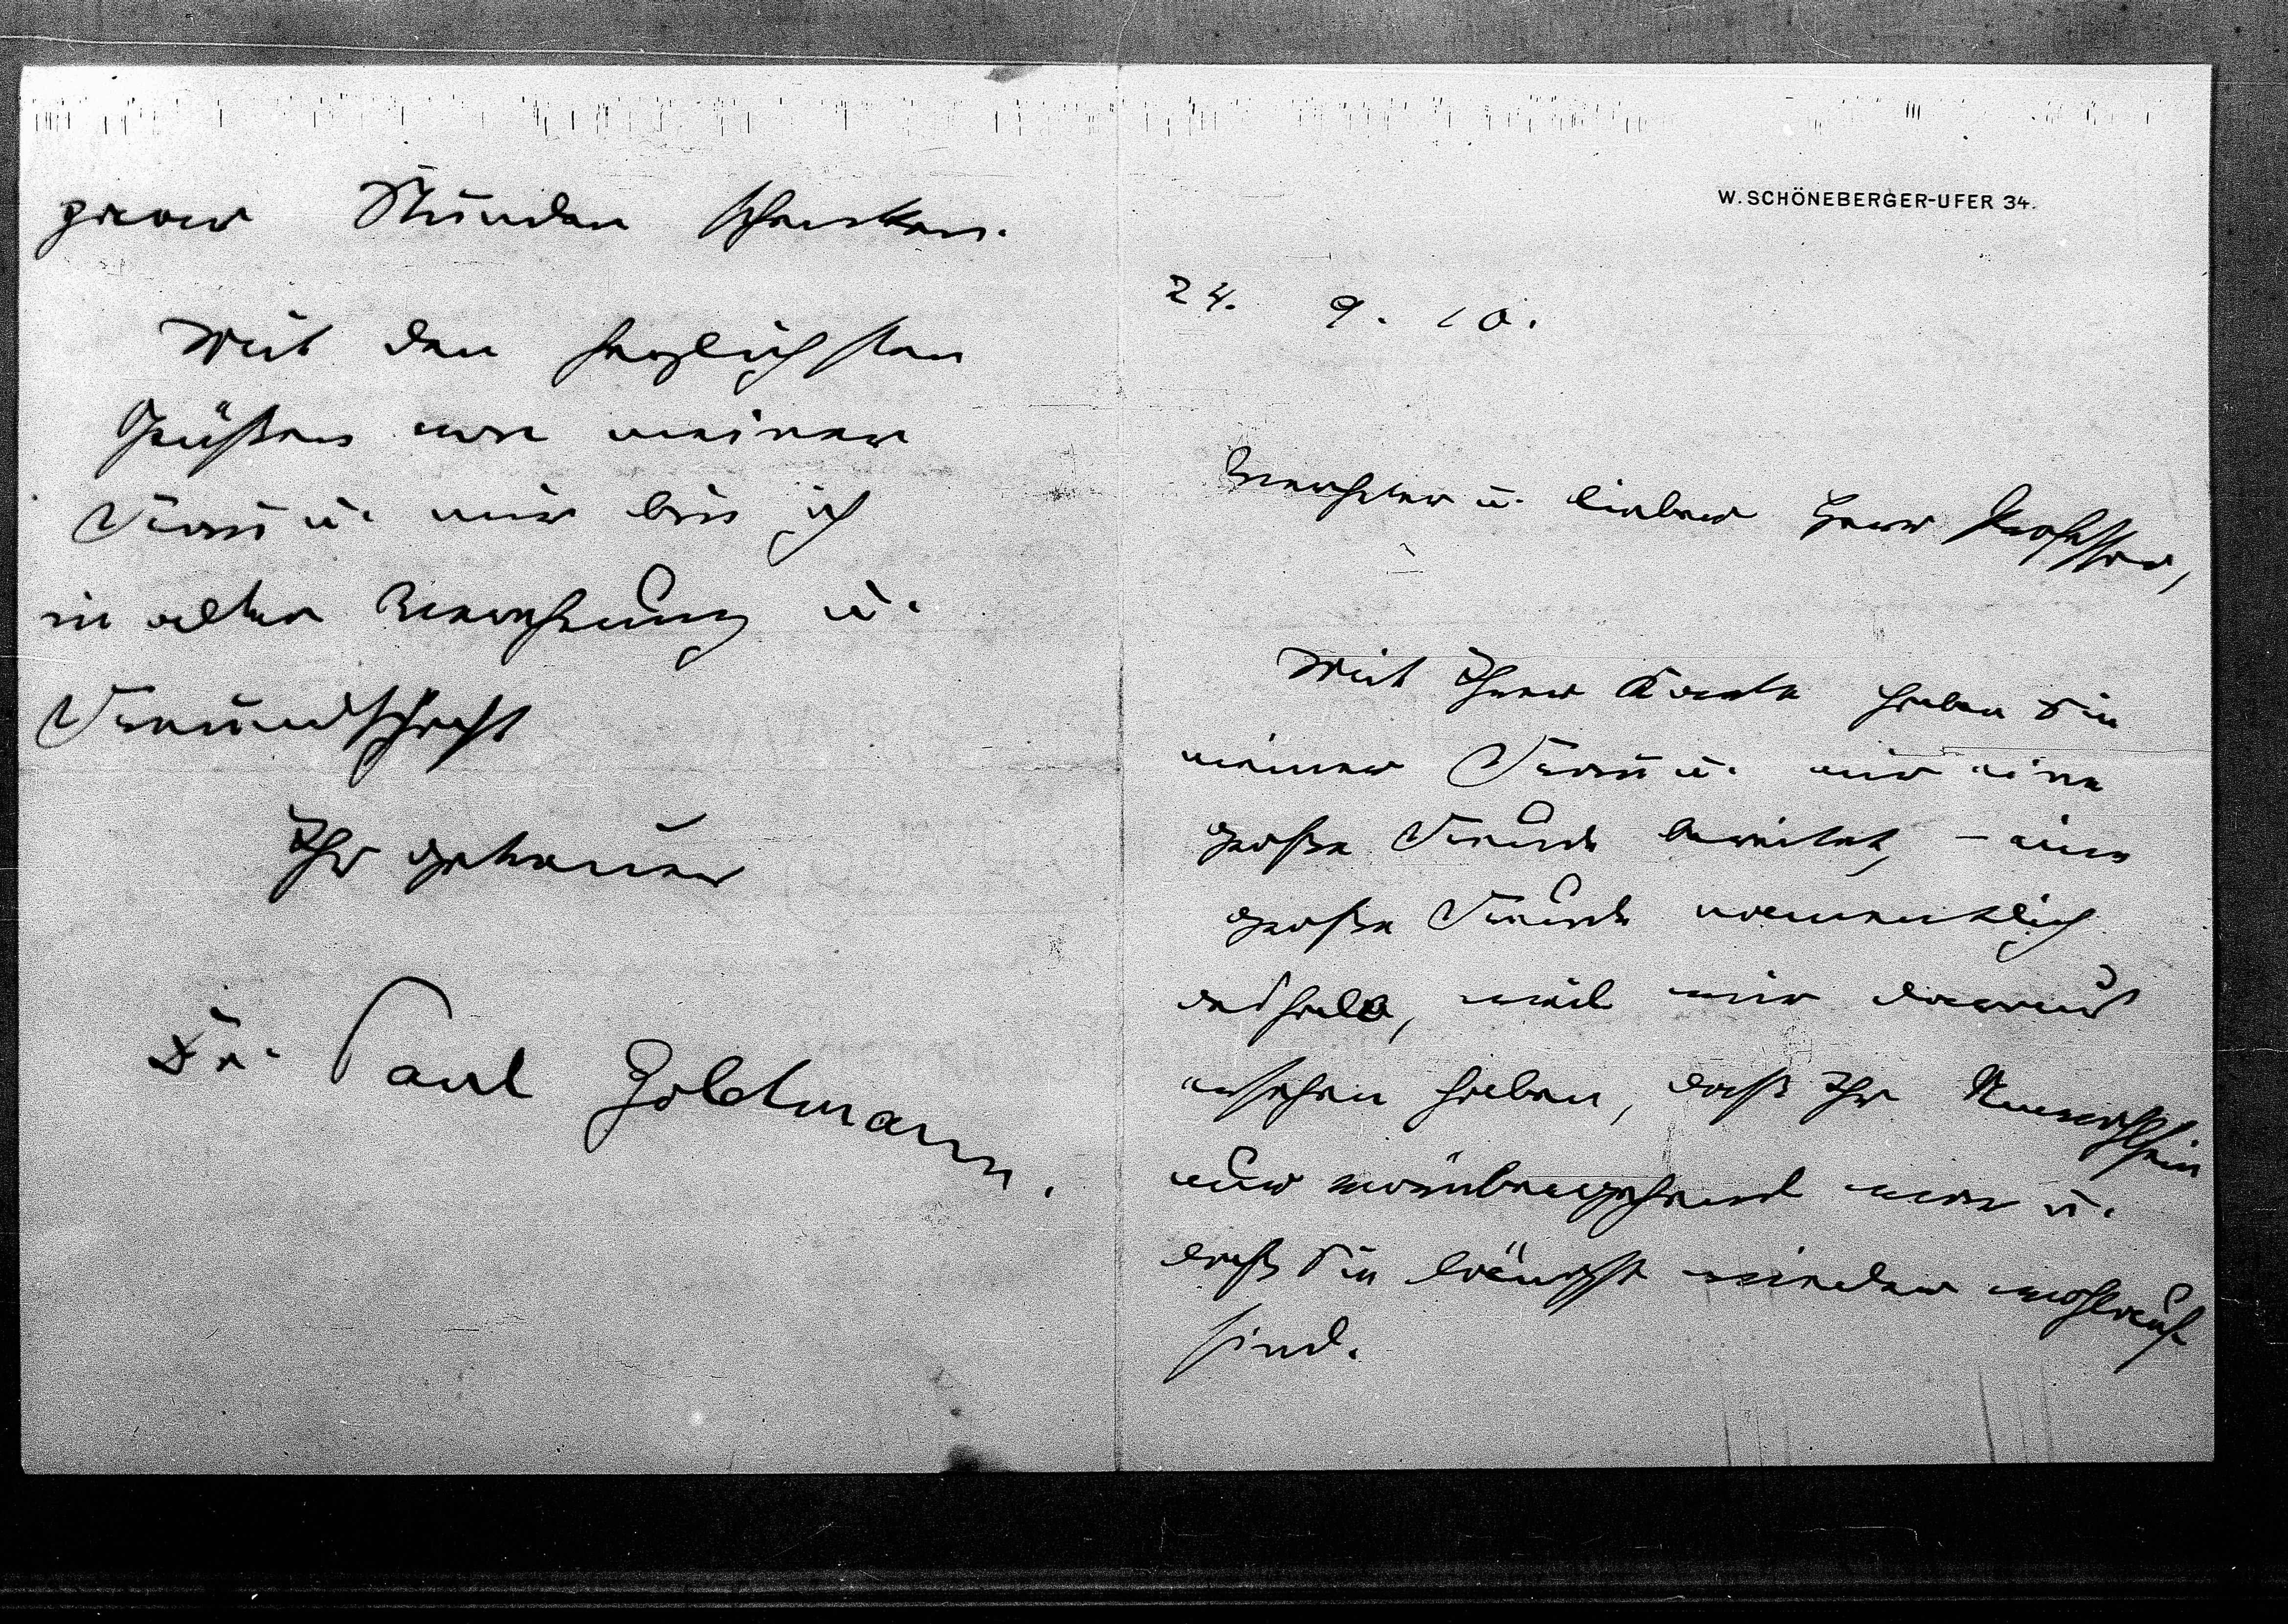 paar Stunden schenken.
Mit den herzlichsten
Grüßen von meiner
Frau u. mir bin ich
in alter Verehrung u.
Freundschaft
Ihr getreuer
Dr. Paul Goldmann.
W. SCHÖNEBERGER-UFER 34.
24. 9. 10.
Verehrter u. lieber Herr Professor,
Mit Ihrer Karte haben Sie
meiner Frau u. mir eine
große Freude bereitet, – eine
große Freude vornehmlich
deshalb, weil wir daraus
ersehen haben, daß Ihr Unwohlsein
nur vorübergehend war u.
daß Sie längst wieder wohlauf
sind.